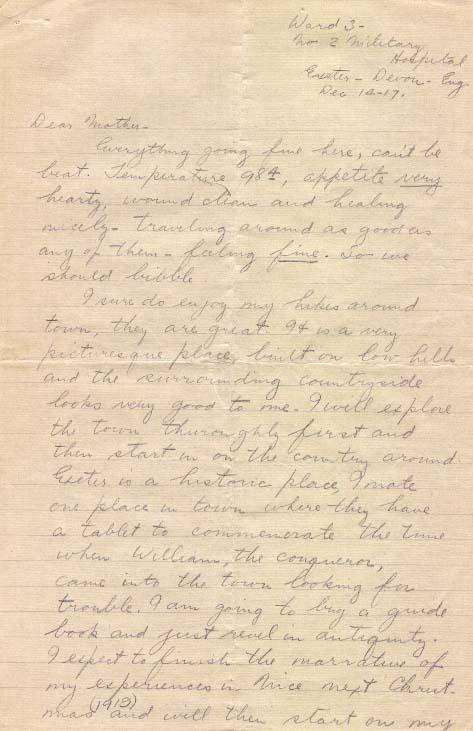 Ward 3-
No 2 Military
Hospital
Exeter - Devon - Eng
Dec 14-17.
Dear Mother-
Everything going fine here, can't be
beat. Temperature 98⁴, appetite very
hearty, wound clean and healing
nicely - traveling around as good as
any of them - feeling fine. So we
should bibble
I sure do enjoy my hikes around
town, they are great. It is a very
picturesque place, built on low hills
and the surrounding countryside
looks very good to me. I will explore
the town thuroughly first and
then start in on the country around.
Exeter is a historic place I note
one place in town where they have
a tablet to commemorate the time
when William, the conqueror,
came into the town looking for
trouble. I am going to buy a guide
book and just revel in antiquity.
I expect to finish the narrative of
my experiences in Nice next Christ-
mas (1913) and will then start on my